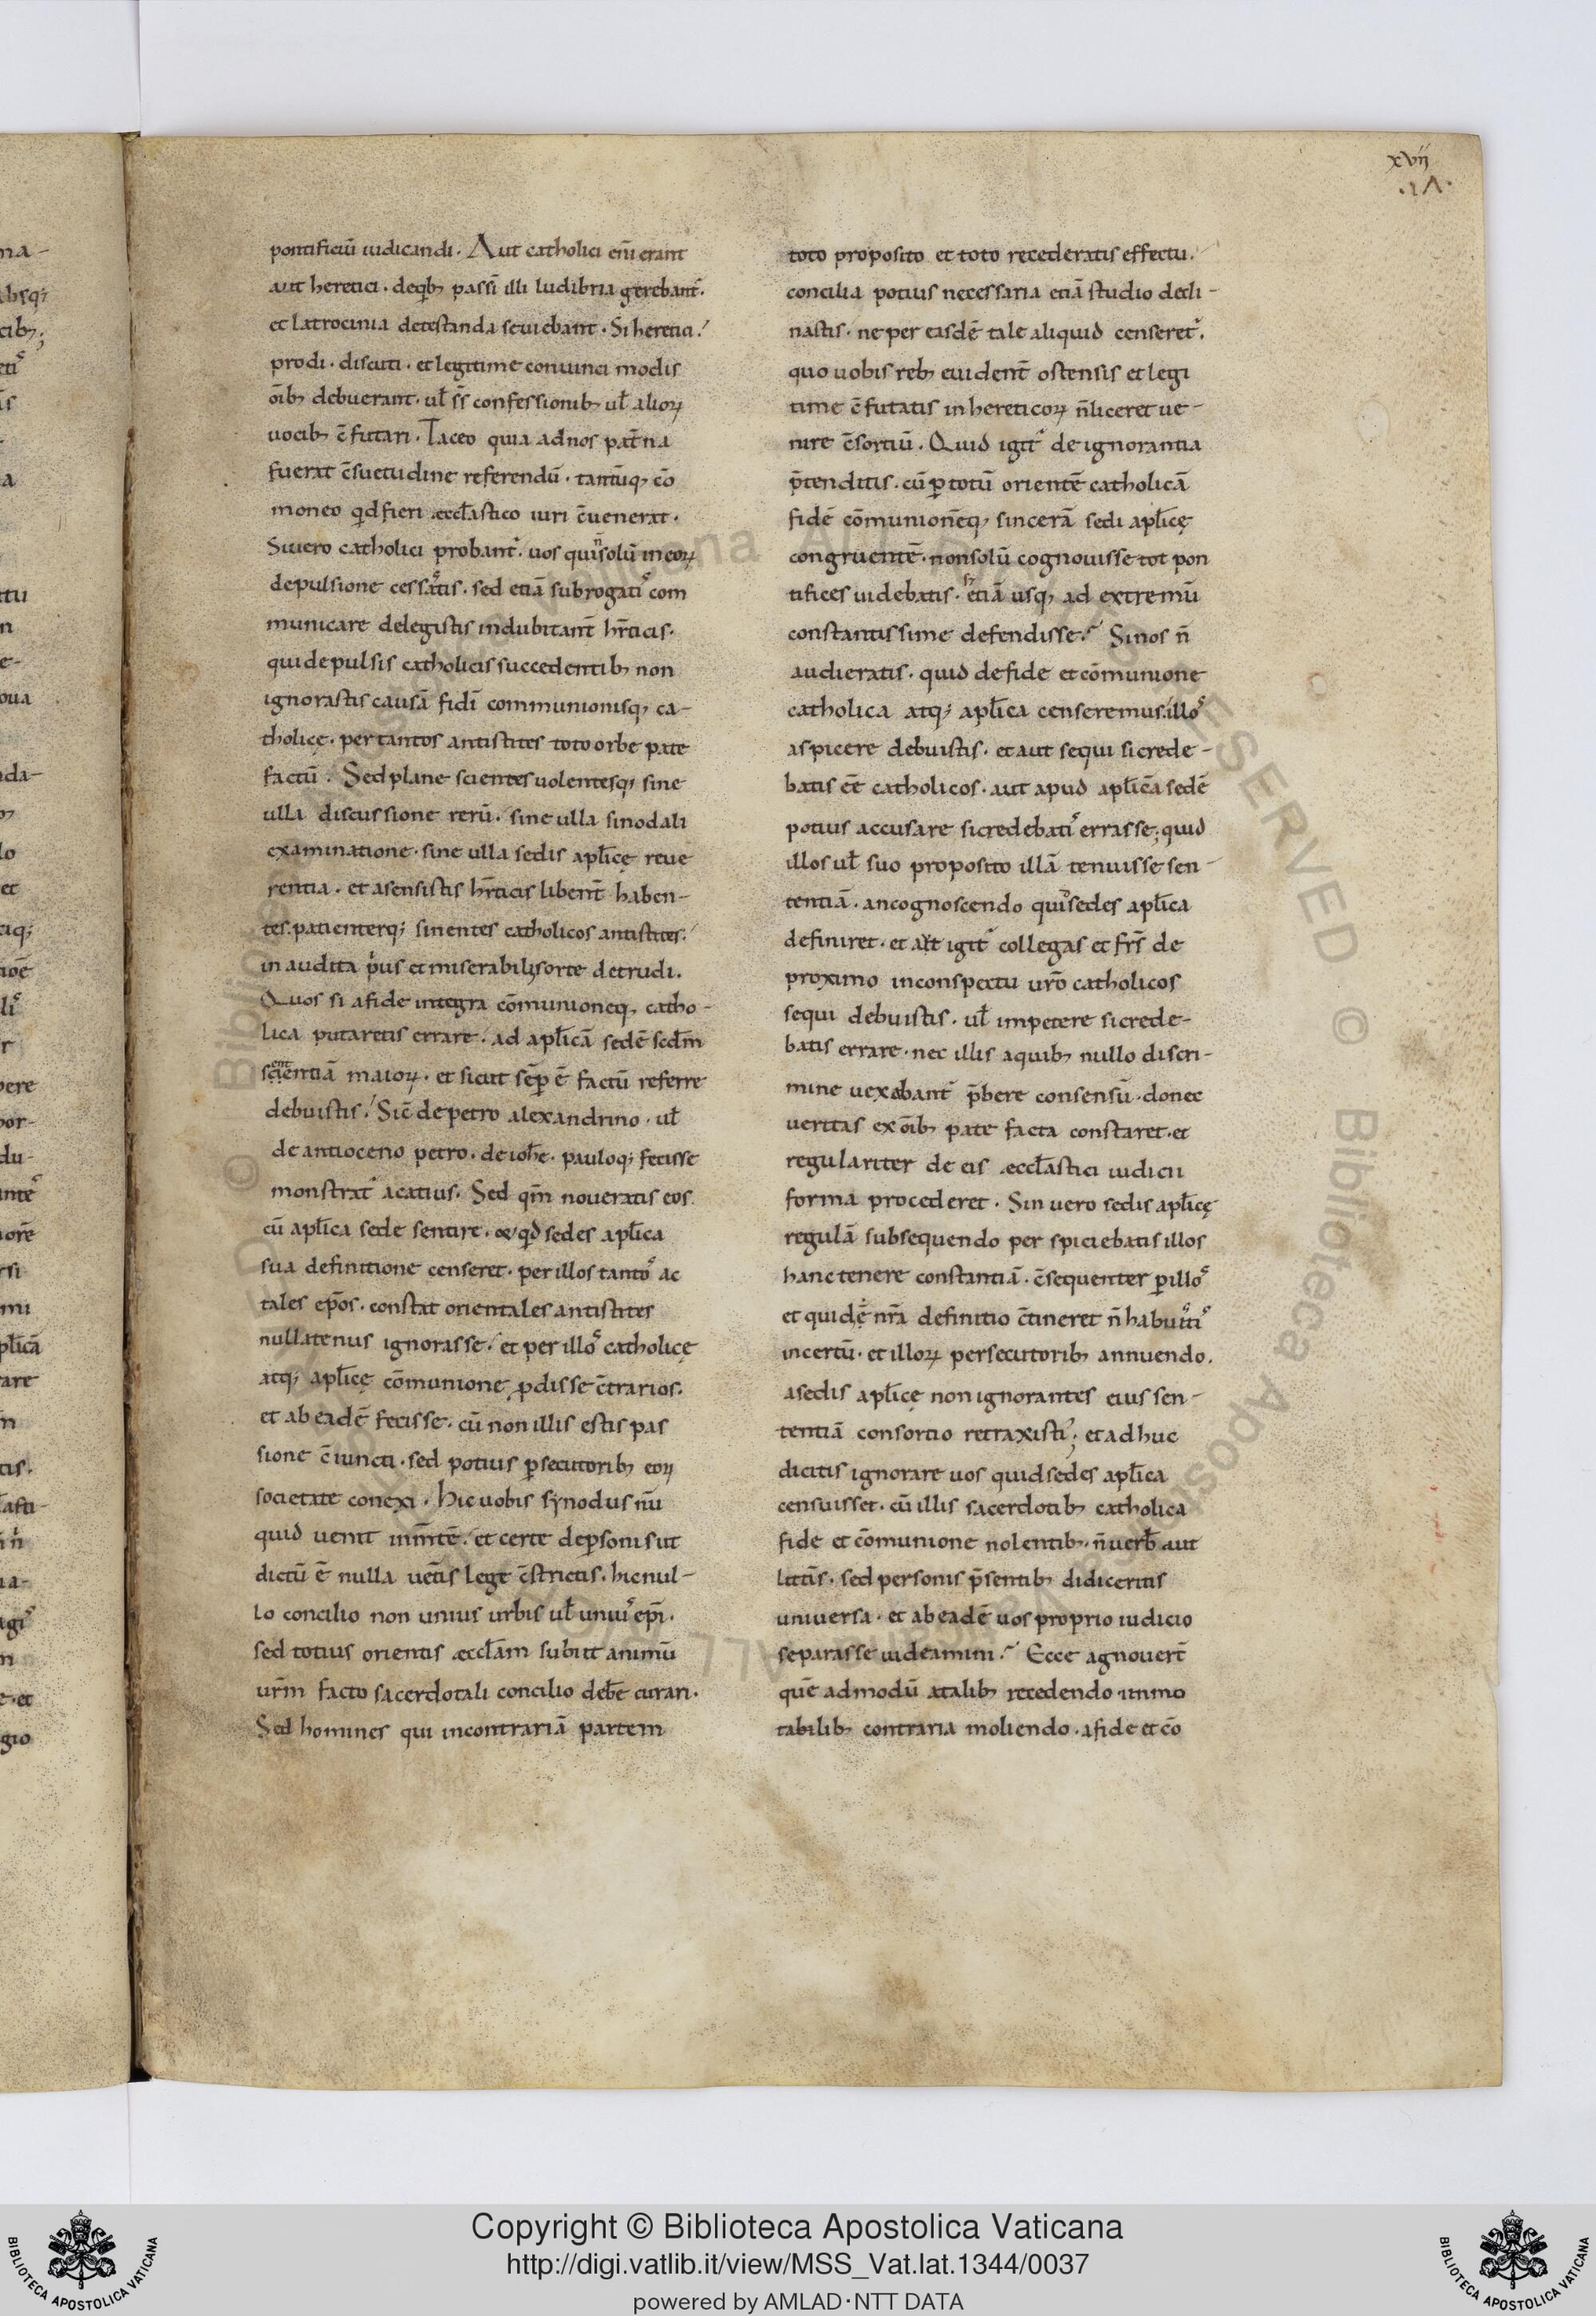 xvij
.17.
pontificiū iudicandi. Aut catholici eni erant
aut heretici. deqb; passi illi ludibria gerebant.
et latrocinia detestanda seuiebant. Si heretici!
prodi. discuti. et legitime conuinci modis
oīb; debuerant. ul̄ s̄s confessionib; ul̄ alioꝝ
uocib; c̄futari. Taceo quia ad nos pat̄na
fuerat c̄suetudine referendū. tantūq; cō
moneo qd fieri æccl̄astico iuri c̄uenerat.
Si uero catholici probant̄. uos qui n̄ solū in eoꝝ
depulsione cessatis. sed etiā subrogatis com
municare delegistis indubitant̄ hr̄ticis.
qui depulsis catholicis succedentib; non
ignorastis causā fidī communionisq; ca-
tholicę. per tantos antistites toto orbe pate
factū. Sed plane scientes uolentesq; sine
ulla discussione rerū. sine ulla sinodali
examinatione. sine ulla sedis apl̄icę reue
rentia. et asensistis hr̄ticis libent̄ haben-
tes. patienterq; sinentes catholicos antistites.
in audita p̄us et miserabili sorte detrudi.
Quos si a fide integra cōmunioneq; catho-
lica putaretis errare. ad apl̄icā sedē scdm̄
scientiā maioꝝ. et sicut sēp ē factū referre
debuistis! Sic̄ de petro alexandrino. ul̄
de antioceno petro. de ioh̄e. pauloq; fecisse
monstrat̄ acatius. Sed qm̄ noueratis eos
cū apl̄ica sede sentire. & qd sedes apl̄ica
sua definitione censeret. per illos tantos ac
tales ep̄os. constat orientales antistites
nullatenus ignorasse. et per illos catholicę
atq; apl̄icę cōmunione ꝓdisse c̄trarios.
et ab eadē fecisse. cū non illis estis pas
sione c̄iuncti. sed potius ꝑsecutorib; eoꝝ
societate conexi. Hic uobis sẏnodus nū
quid uenit in m̄tē. et certe de ꝑsonis ut
dictū ē nulla uet̄is lege c̄strictis. hic nul-
lo concilio non unius urbis ul̄ unius ep̄i.
sed totius orientis æccl̄am subiit animū
ur̄m facto sacerdotali concilio deb̄e curari.
Sed homines qui in contrariā partem
toto proposito et toto recederatis effectu.
concilia potius necessaria etiā studio decli-
nastis. ne per easdē tale aliquid censeret̄.
quo uobis reb; euident̄ ostensis et legi
time c̄futatis in hereticoꝝ n̄ liceret ue-
nire c̄sortiū. Quid igit̄ de ignorantia
p̄tenditis. cū ꝑ totū orientē catholicā
fidē cōmunionēq; sincerā sedi apl̄icę
congruentē. non solū cognouisse tot pon
tifices uidebatis. s; etiā usq; ad extremū
constantissime defendisse? Si nos n̄
audieratis. quid de fide et cōmunione
catholica atq; apl̄ica censeremus. illos
aspicere debuistis. et aut sequi si crede-
batis eē catholicos. aut apud apl̄icā sedē
potius accusare si credebatis errasse; quid
illos ul̄ suo proposito illā tenuisse sen-
tentiā. an cognoscendo quid sedes apl̄ica
definiret. et aut igit̄ collegas et fr̄s de
proximo in conspectu ur̄o catholicos
sequi debuistis. ul̄ impetere si crede-
batis errare. nec illis a quib; nullo discri-
mine uexabant̄ p̄bere consensū. donec
ueritas ex oīb; pate facta constaret. et
regulariter de eis æccl̄astici iudicii
forma procederet. Sin uero sedis apl̄icę
regulā subsequendo per spiciebatis illos
hanc tenere constantiā. c̄sequenter ꝑ illos
et quidē nr̄a definitio c̄tineret n̄ habuistis
incertū. et illoꝝ persecutorib; annuendo.
a sedis apl̄icę non ignorantes eius sen-
tentiā consortio retraxistis; et ad huc
dicitis ignorare uos quid sedes apl̄ica
censuisset. cū illis sacerdotib; catholica
fide et cōmunione nolentib;. n̄ uerb̄ aut
litt̄is. sed personis p̄sentib; didiceritis
uniuersa. et ab eadē uos proprio iudicio
separasse uideamini? Ecce agnouer̄t
quē admodū a talib; recedendo immo
tabilib; contraria moliendo. a fide et cō
Copyright © Biblioteca Apostolica Vaticana
http://digi.vatlib.it/view/MSS_Vat.lat.1344/0037
powered by AMLAD·NTT DATA
BIBLIOTECA APOSTOLICA VATICANA
BIBLIOTECA APOSTOLICA VATICANA